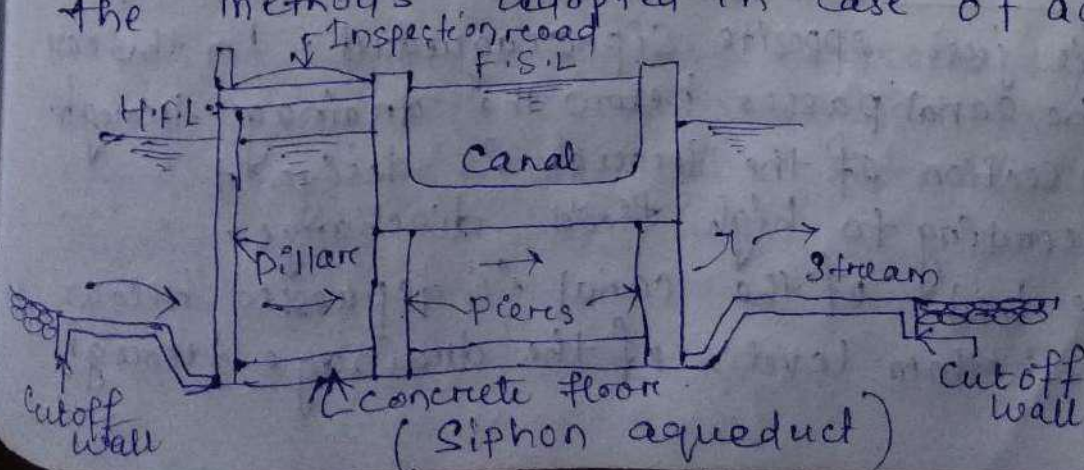 the methods adopted in case of
Inspection reoad
F.S.L
H.F.L
Canal
pillarc
Stream
piercs
Cutoff
wall
Concrete floor
Cutoff
wall
(Siphon aqueduct)